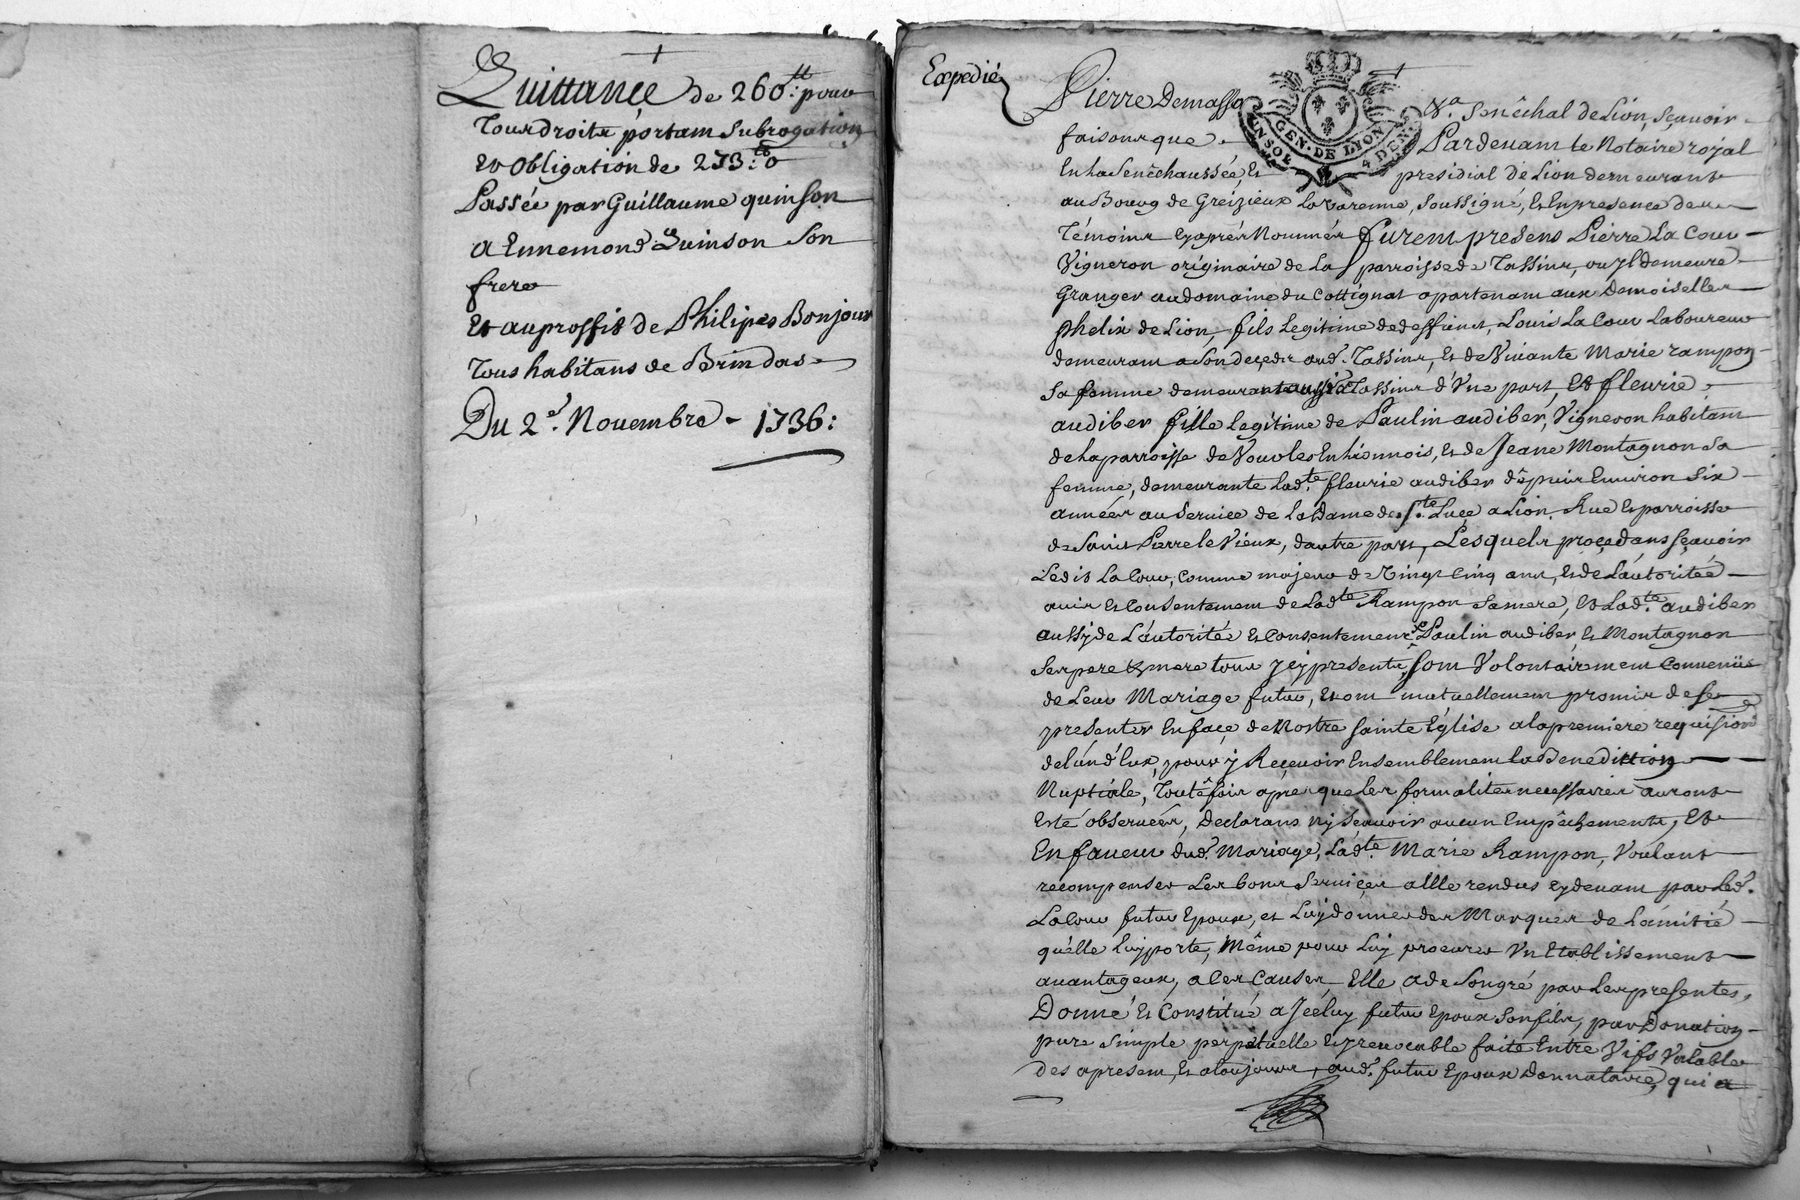 Quittance de 260ᵗᵗ: pour
Tous droits portam Subrogation
et Obligation de 273:ᵗᵗ0
Passée par Guillaume quinson
a Ennemond Quinson Son
frere
Et au proffit de Philipes Bonjour
Tous habitans de Brindas
Du 2ᵉ. Novembre - 1736:
Expedié
Pierre Demasso
Sᵃ. Senêchal de Lion, Sçavoir
faisons que.
Pardevant le Notaire roÿal
En la Senêchaussée et
presidial de Lion demeurant
GEN. DE LYON
4 DEN.
au Bourg de Greizieux la Varenne, Soussigné, et En presence des
Témoins cy aprés Nommés furem presens Pierre La Cour
Vigneron originaire de la parroisse de Tassins, ou Jl demeure
Granger au domaine du Cottignat apartenam aux Demoiselles
phelix de Lion, fils Legitime de deffunt, Louis La Cour Laboureur
demeuram a Son deçeds aud. Tassins, Et de Vivante Marie rampon
Sa femme demeurante aussi a Tassins d'Vne part, Et fleurie
audiber fille Legitime de Paulin audiber, Vigneron habitam
de la parroisse de Vourles en Lionnois, et de Jeane Montagnon Sa
femme, demeurante Ladᵗᵉ. fleurie audiber dêpuis Environ Six
années au Service de la Dame de Sᵗᵉ. Luce a Lion Rue et parroisse
de Saint Pierre le Vieux, dautre part, Lesquels proçedans Sçavoir
Ledit La Cour, comme majeur de Vingt Cinq ans, et de L'autoritée
avis et Consentement de Ladᵗᵉ Rampon Sa mere, et Ladᵗᵉ. audiber
aussÿ de L'autorité et consentement, Paulin audiber et Montagnon
Ses pere & mere tous Jcy presents, Sont Volontairement Convenüs
de Leur Mariage futur, et ont mutuellement promis de Se
presenter En façe de Nostre Sainte Eglise a la premiere requision
de L'un d'Eux, pour y Reçevoir Ensemblement la Benediction
Nuptiale, Toutêfois aprés que Les formalites necessaires auront
Esté observées, Declarans nÿ Sçavoir aucun Empêchements, Et
En faveur dud. Mariage, Ladᵗᵉ. Marie Rampon, Voulant
recompenser Les bons Serviçes a Elle rendus cy devant par Led.
La Cour futur Epoux, et Luy donner des Marques de L'amitié
qu'elle Luy porte, Même pour Luy procurer Vn Etablissement
avantageux, a Ces Causes, Elle a de Son gré par Les presentes,
Donné et Constitué a Jçeluy futur Epoux Son fils, par Donation
pure Simple perpetuelle et jrevocable faite Entre Vifs Valable
des a present, et a toujours, aud. futur Epoux Donnataire, qui a